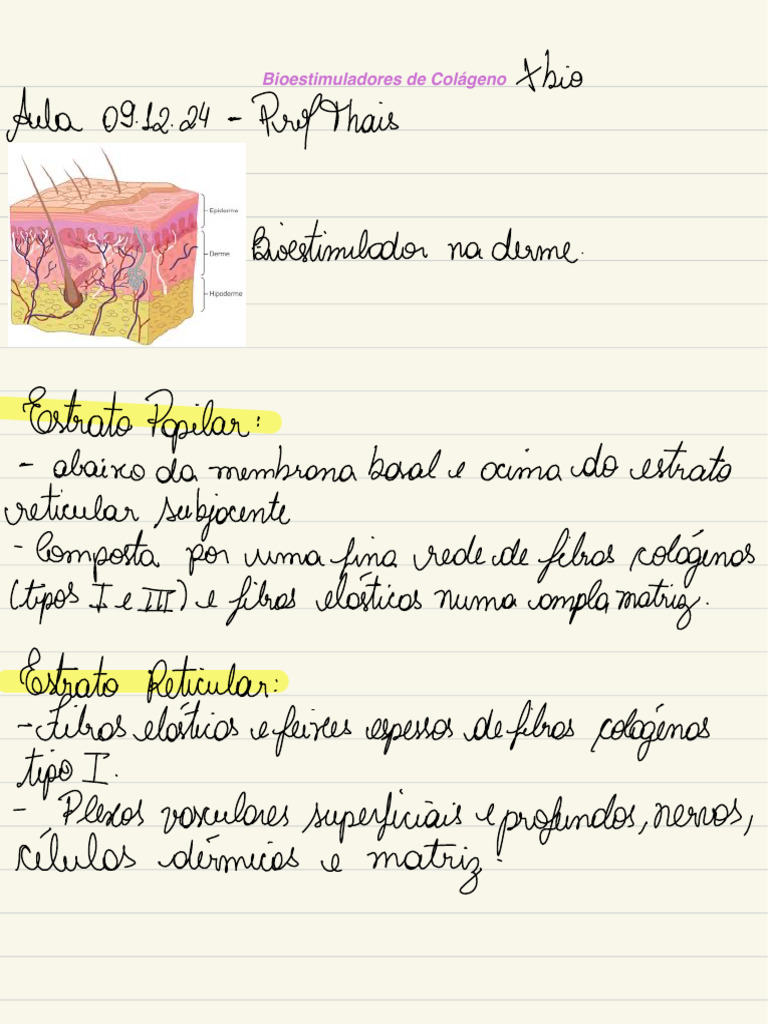 Bioestimuladores de Colágeno Xbio
Aula 09.12.24 - Prof Thais
Epiderme
Derme
Hipoderme
Bioestimulador na derme.
Estrato Papilar:
- abaixo da membrana basal e acima do estrato
reticular subjacente
- Composta por uma fina rede de fibras colágenas
(tipos I e III) e fibras elásticas numa ampla matriz.
Estrato Reticular:
- Fibras elásticas e feixes espessos de fibras colágenas
tipo I.
- Plexos vasculares superficiais e profundos, nervos,
células dérmicas e matriz.